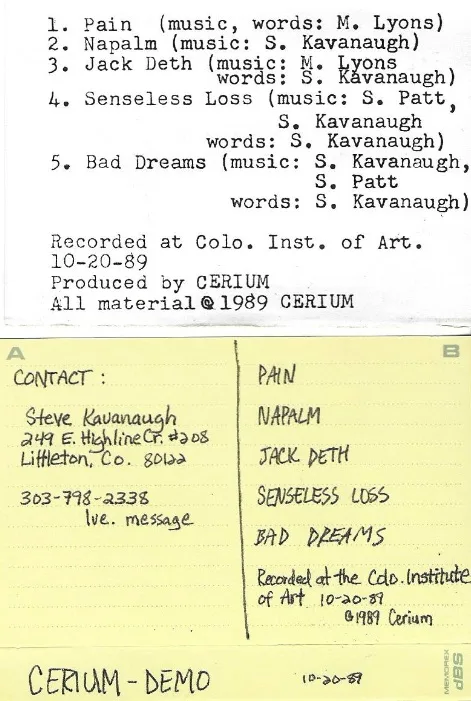 1. Pain (music, words: M. Lyons)
2. Napalm (music: S. Kavanaugh)
3. Jack Deth (music: M. Lyons
words: S. Kavanaugh)
4. Senseless Loss (music: S. Patt,
S. Kavanaugh
words: S. Kavanaugh)
5. Bad Dreams (music: S. Kavanaugh,
S. Patt
words: S. Kavanaugh)
Recorded at Colo. Inst. of Art.
10-20-89
Produced by CERIUM
All material @ 1989 CERIUM
A
CONTACT :
Steve Kavanaugh
249 E. Highline Cr. #208
Littleton, Co. 80122
303-798-2338
lve. message
B
PAIN
NAPALM
JACK DETH
SENSELESS LOSS
BAD DREAMS
Recorded at the Colo. Institute
of Art 10-20-89
©1989 Cerium
CERIUM - DEMO 10-20-89
MEMOREX
dBS